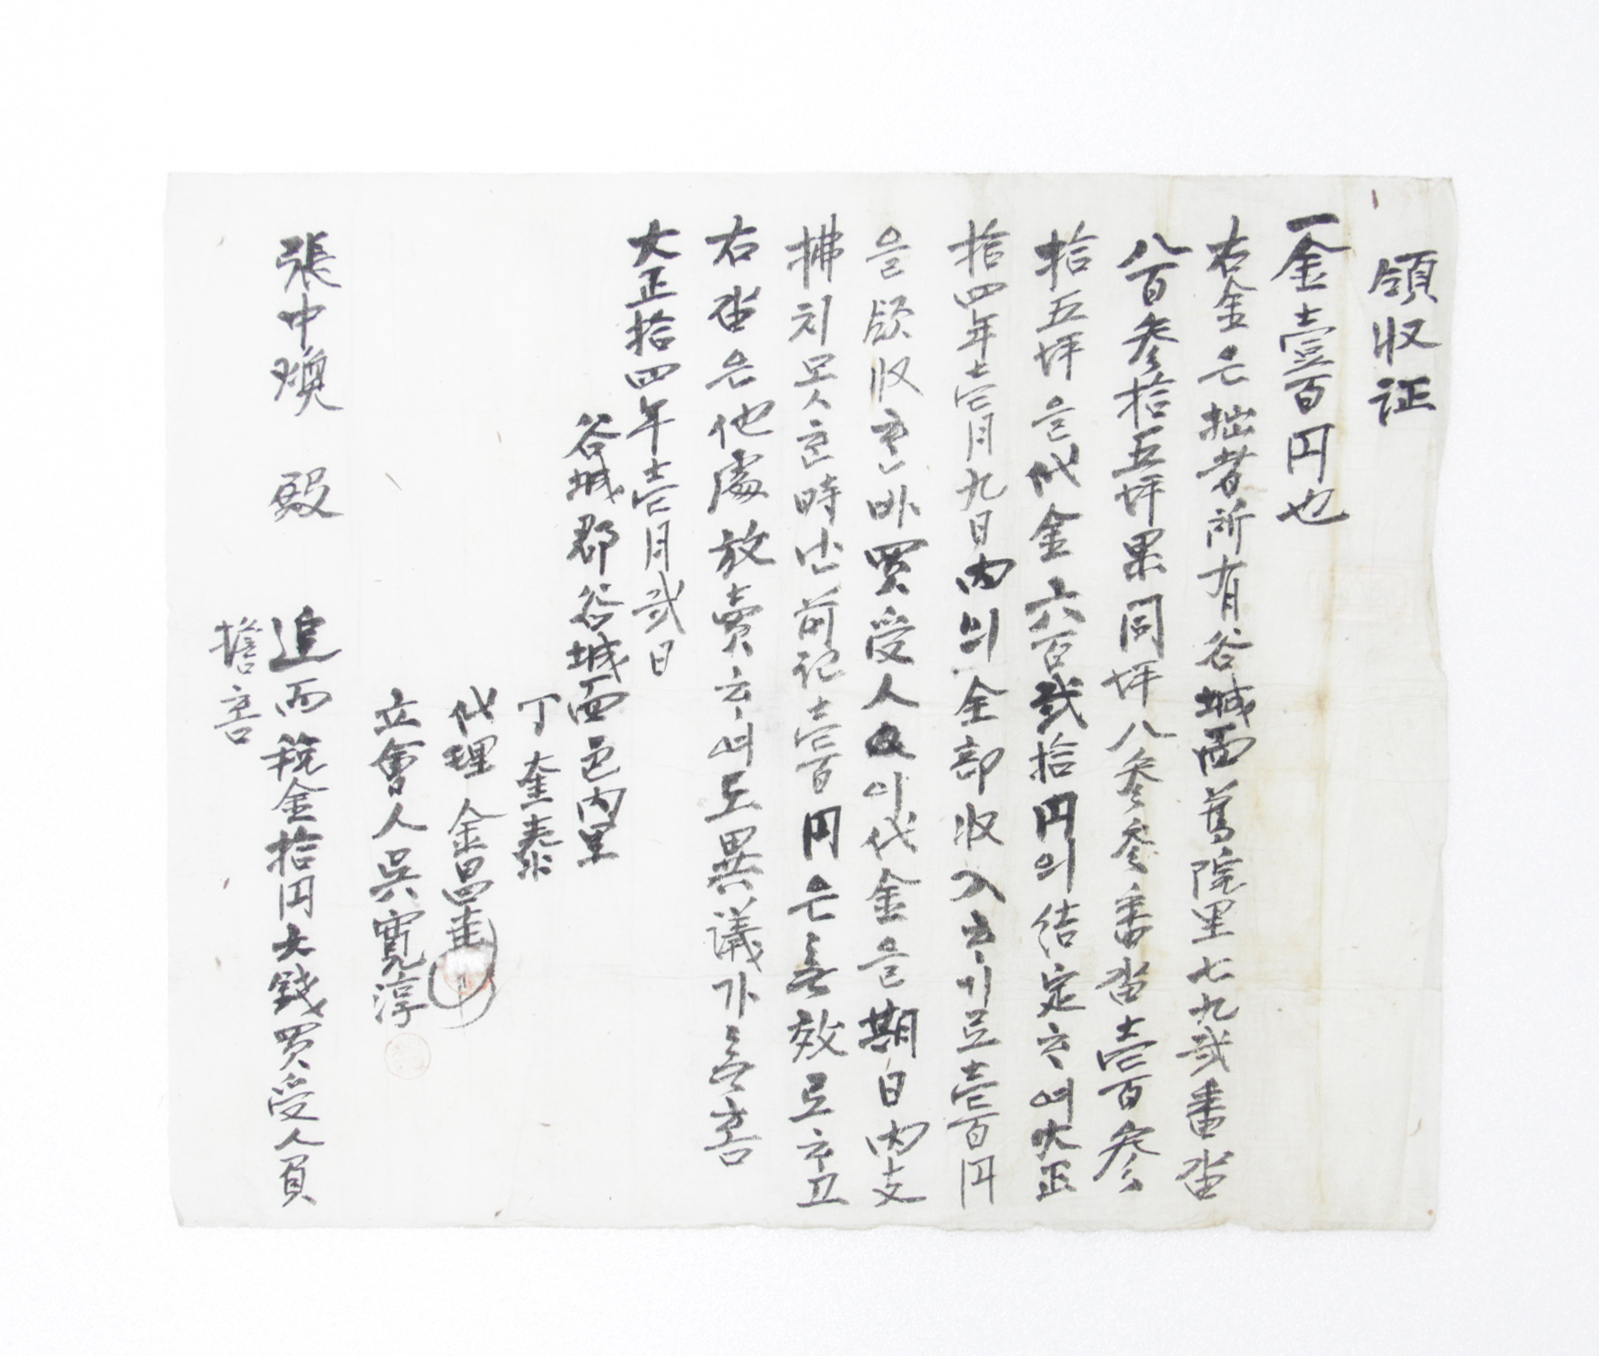 領收证
一金壹百円也
右金은拙者所有谷城面舊院里七九弍番畓
八百參拾五坪果同坪八參參番畓壹百參
拾五坪을代金六百貳拾円의結定하며大正
拾四年壹月九日內의全部收入하기로壹百円
을領收한바買受人이代金을期日內支
拂치못한時는前記壹百円은無效로하고
右畓은他處放賣하며도異議가無홈
大正拾四年壹月弍日
谷城郡谷城面邑內里
丁奎泰
代理 金昌圭
立會人吳寬淳
張中煥 殿 追而稅金拾円大錢買受人負
擔홈